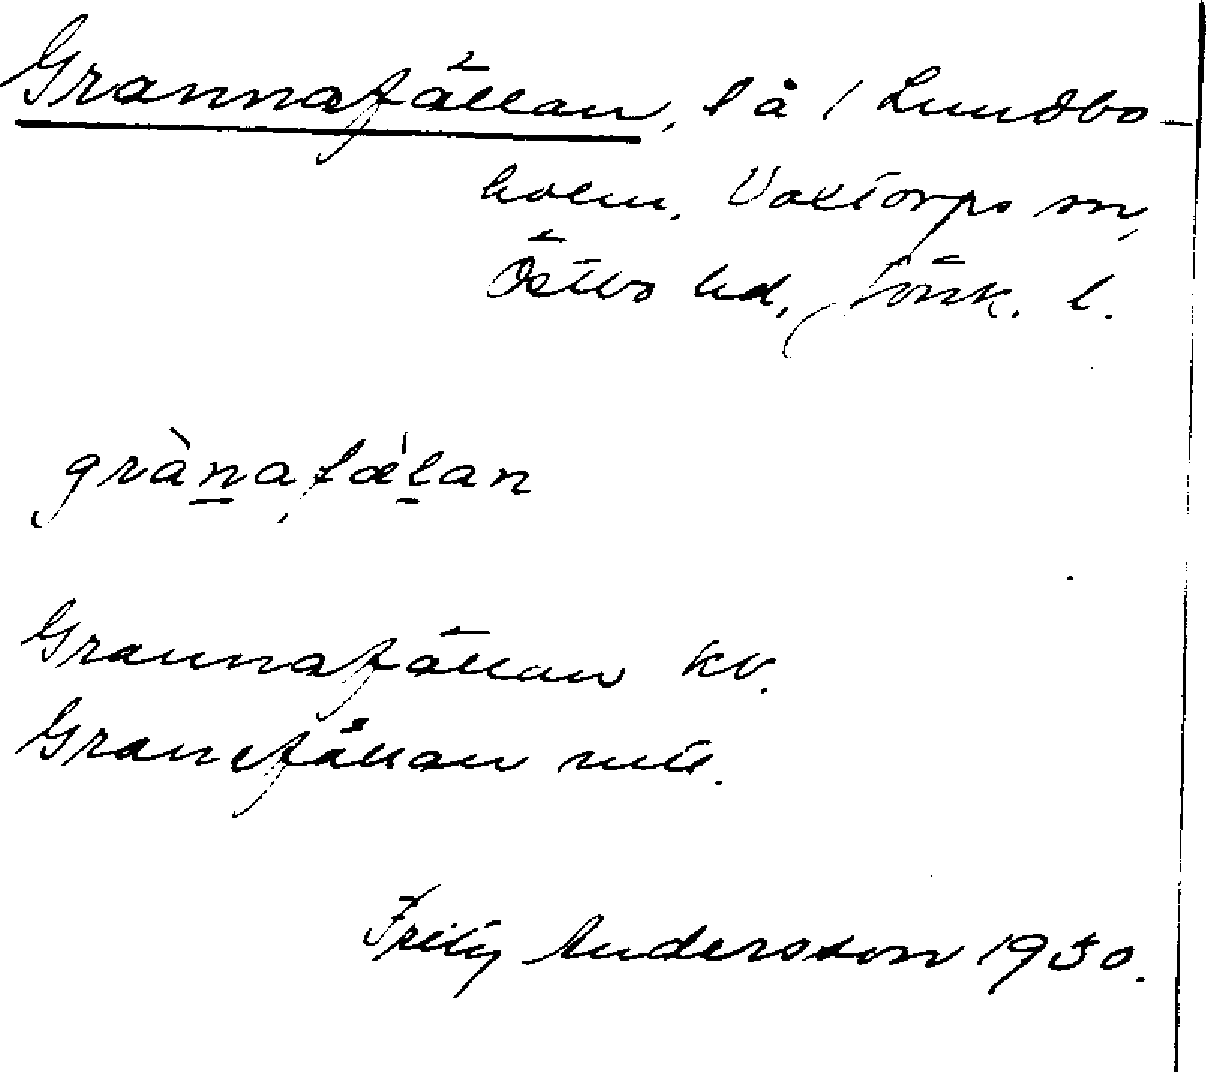 Grannafällan, l å / Lundbo-
holm, Voxtorps sn,
Östbo hd, Jönk. l.
grànafǽlan
Grannafällan kv.
Granefällan
Fritz Andersson 1930.